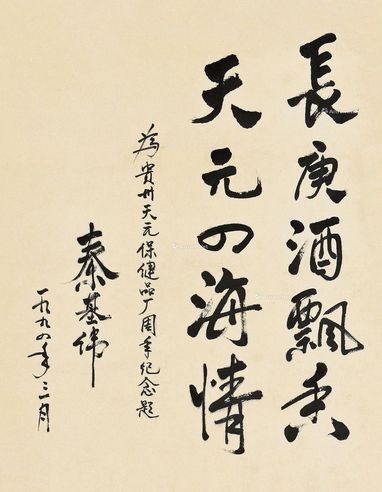 長庚酒飄香
天元四海情
為貴州天元保健品厂周年纪念题
秦基伟
一九九四年三月